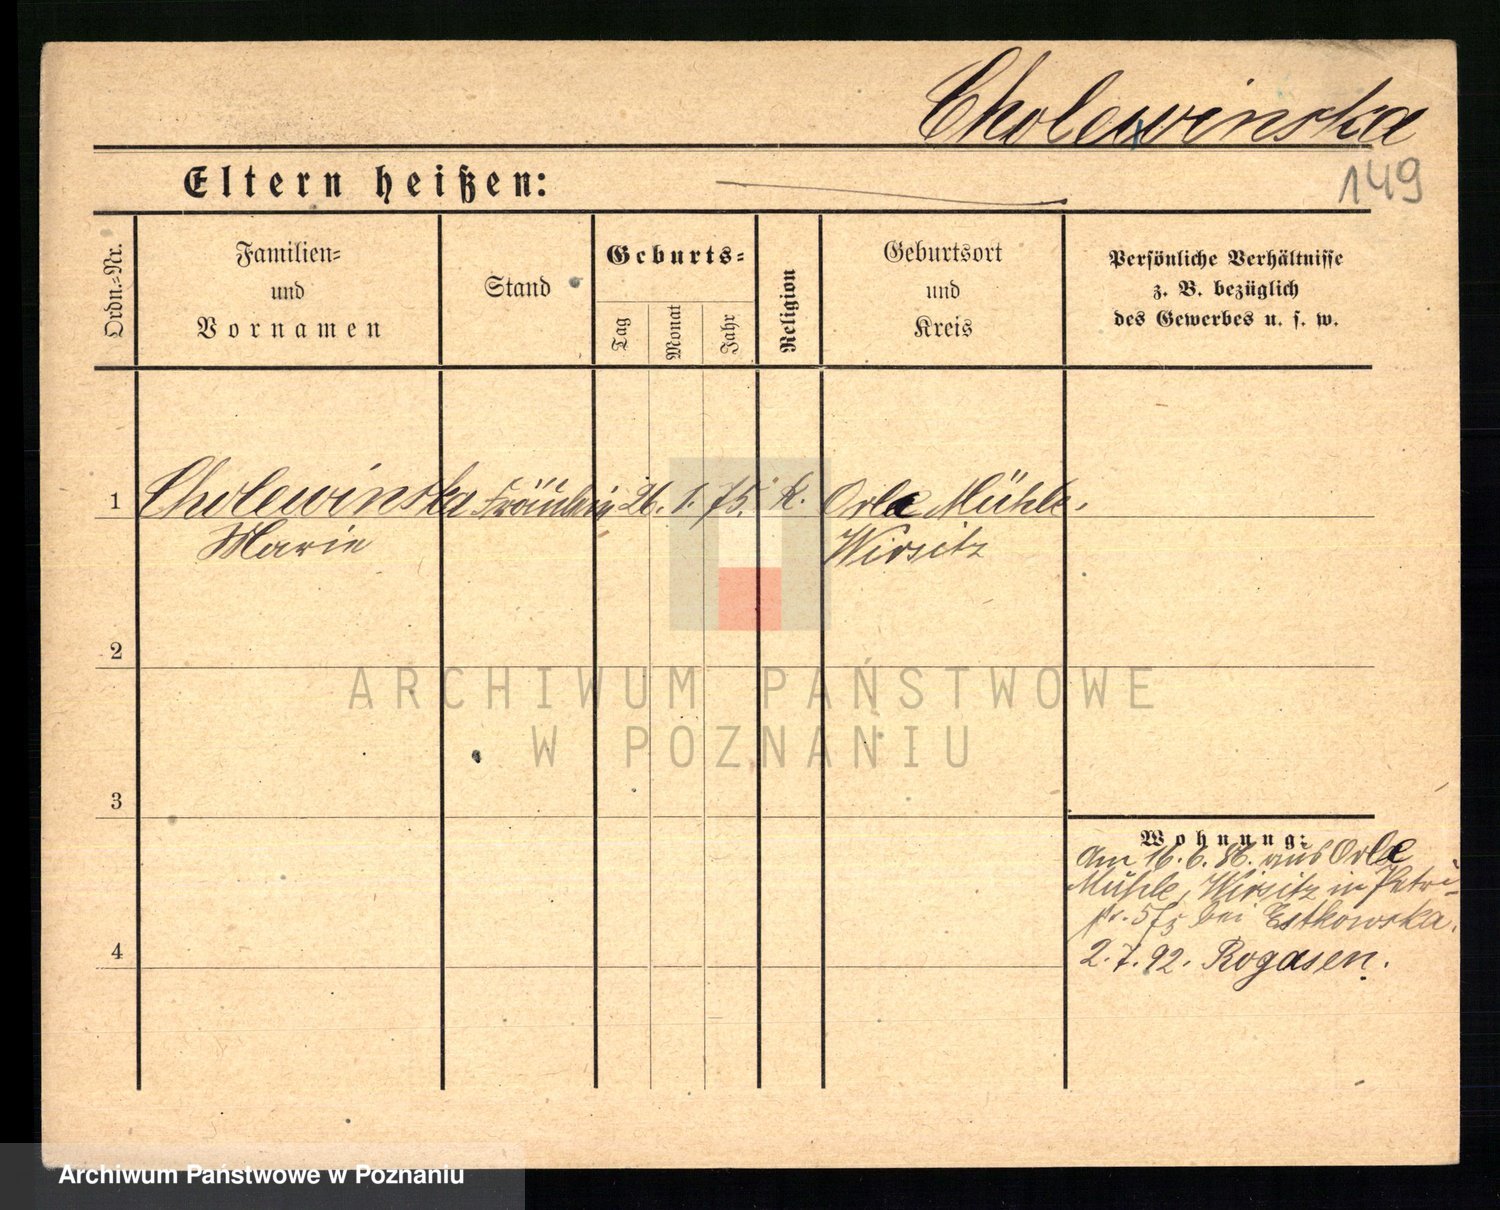 Cholewinska
149
Eltern heißen:
Ordn.=Nr.
Familien=
und
Vornamen
Stand
Geburts=
Tag
Monat
Jahr
Religion
Geburtsort
und
Kreis
Persönliche Verhältnisse
z. B. bezüglich
des Gewerbes u. s. w.
1 Cholewinska Fräulein 26. 1. 75. k. Orle Mühle,
Marie Wirsitz
2
ARCHIWUM PAŃSTWOWE
W POZNANIU
3
Wohnung:
Am 16. 6. 86. aus Orle
Mühle, Wirsitz in Petri-
bei Estkowska.
4
2. 7. 92. Rogasen.
Archiwum Państwowe w Poznaniu